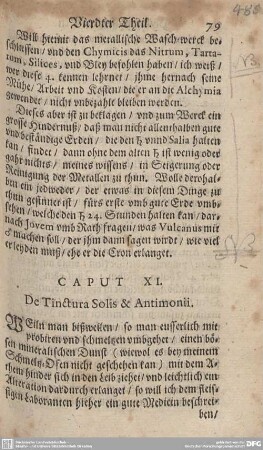 Vierdter Theil. 79
Will hiemit das metallische Wasch-werck be-
schliessen / vnd den Chymicis das Nitrum, Tarta-
rum, Silices, vnd Bley befohlen haben / ich weiß /
wer diese 4. kennen lehrnet / jhme hernach seine
Mühe / Arbeit vnd Kosten / die er an die Alchymia
gewendet / nicht vnbezahlt bleiben werden.
Dieses aber ist zu beklagen / vnd zum Werck ein
grosse Hindernuß / daß man nicht allenthalben gute
vnd beständige Erden / die den ♄ vnnd Salia halten
kan / findet / dann ohne dem alten ♄ ist wenig oder
gahr nichts / meines wissens / in Seigerung oder
Reinigung der Metallen zu thun. Wolle derohal-
ben ein jedweder / der etwas in diesem Dinge zu
thun gesinnet ist / fürs erste vmb gute Erde vmb-
sehen / welche den ♄ 24. Stunden halten kan / dar-
nach Jovem vmb Rath fragen / was Vulcanus mit
machen soll / der jhm dann sagen wirdt / wie viel
er leyden muß / ehe er die Cron erlanget.
CAPUT XI.
De Tinctura Solis & Antimonii.
WEiln man bißweilen / so man eusserlich mit
probiren vnd schmeltzen vmbgehet / einen bö-
sen mineralischen Dunst (wiewol es bey meinem
Schmeltz-Ofen nicht geschehen kan) mit dem A-
them hinder sich in den Leib ziehet / vnd leichtlich ein
Alteration dardurch erlanget / so will ich dem fleis-
sigen Laboranten hieher ein gute Medicin beschrei-
ben /